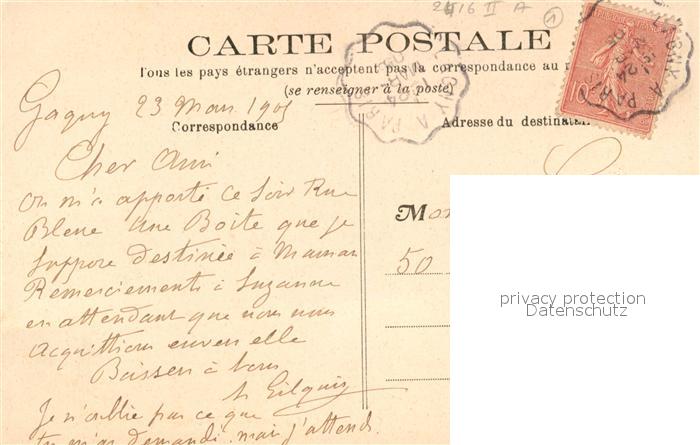 2416 II A 1
CARTE POSTALE
Tous les pays étrangers n'acceptent pas la correspondance au
(se renseigner à la poste)
Gagny 23 Mars 1905
Correspondance
Adresse du destinatai
Cher Ami
On m'a apporté ce soir Rue
Bleue une Boite que je
suppose destinée à Maman
Remerciements à Suzanne
en attendant que nous nous
acquittions envers elle
Mon
50
privacy protection
Datenschutz
Baisers à tous
Je n'oublie pas ce que
tu m'as demandé mais j'attends